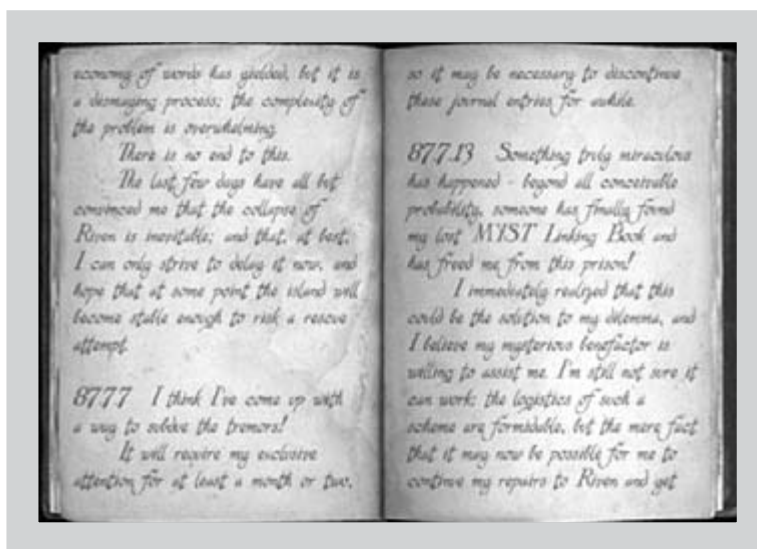 economy of words has yielded, but it is
a dismaying process; the complexity of
the problem is overwhelming.
There is no end to this.
The last few days have all but
convinced me that the collapse of
Riven is inevitable; and that, at best,
I can only strive to delay it now, and
hope that at some point the island will
become stable enough to risk a rescue
attempt.
87.7.7 I think I've come up with
a way to subdue the tremors!
It will require my exclusive
attention for at least a month or two,
so it may be necessary to discontinue
these journal entries for awhile.
87.7.13 Something truly miraculous
has happened - beyond all conceivable
probability, someone has finally found
my lost MYST Linking Book and
has freed me from this prison!
I immediately realized that this
could be the solution to my dilemma, and
I believe my mysterious benefactor is
willing to assist me. I'm still not sure it
can work; the logistics of such a
scheme are formidable, but the mere fact
that it may now be possible for me to
continue my repairs to Riven and get